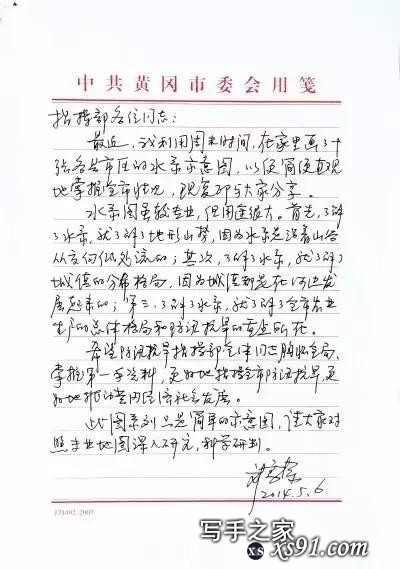 中共黄冈市委会用笺
指挥部各位同志:
最近,我利用周末时间,在家里画了十
张各县市区的水系示意图,以便简便直观
地掌握全市状况,现复印与大家分享。
水系图虽较专业,但用途很大。首先,了解
了水系,就了解了地形山势,因为水总是沿着山谷
从高向低处流的;其次,了解了水系,就了解了
城镇的分布格局,因为城镇都是在河边发
展起来的;第三,了解了水系,就了解了全市农业
生产的总体格局和防汛抗旱的重点所在。
希望防汛抗旱指挥部全体同志胸怀全局、
掌握第一手资料,更好地指挥全市防汛抗旱,更
好地推动黄冈经济社会发展。
此图系列只是简单的示意图,请大家对
照专业地图深入研究,科学研判。
2014.5.6
171402.2007
写手之家
xs xs91.com